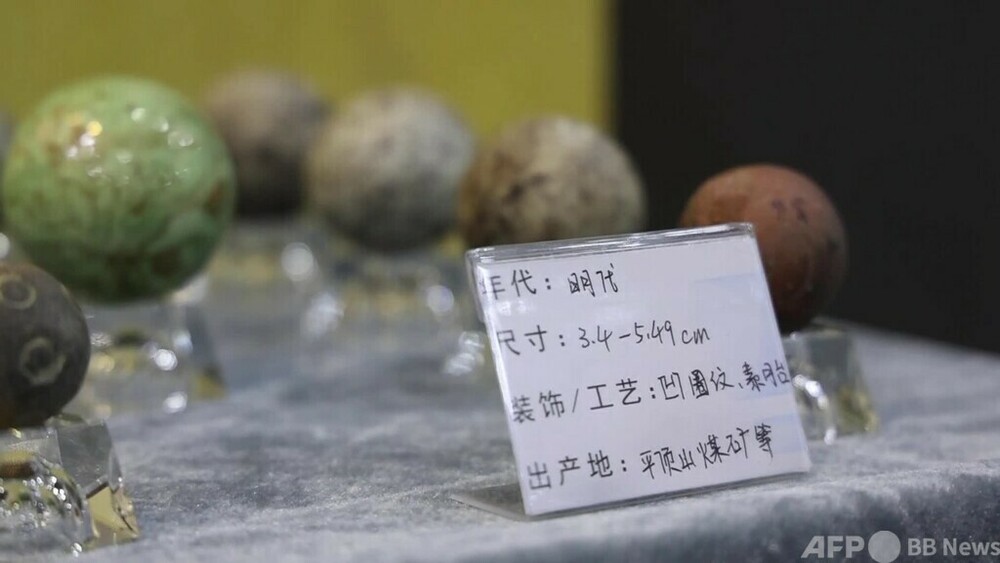 年代：明代
尺寸：3.4-5.49cm
装饰/工艺：凹圈纹、素胎
出产地：平顶山煤矿等
AFP BB News